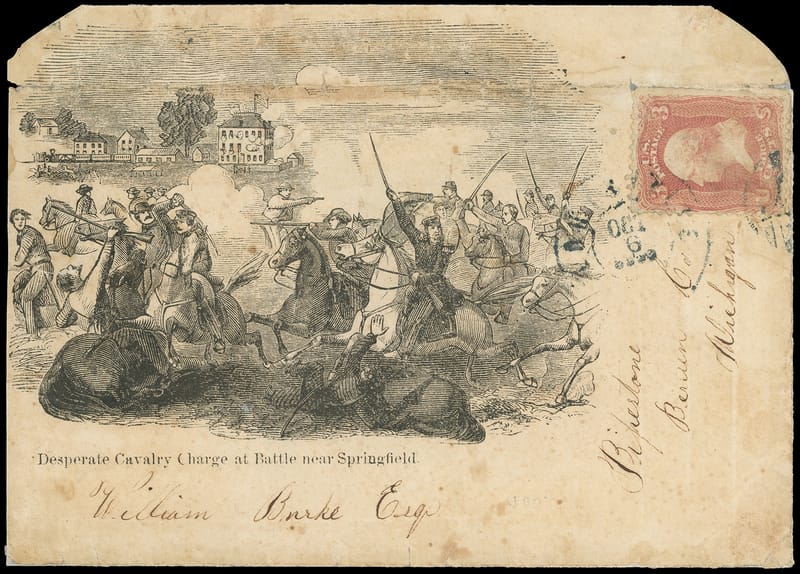 Desperate Cavalry Charge at Battle near Springfield.
William Burke Esqr
Pipestone
Berrien Co
Michigan
3 3
U.S. POSTAGE
CENTS
OCT
9